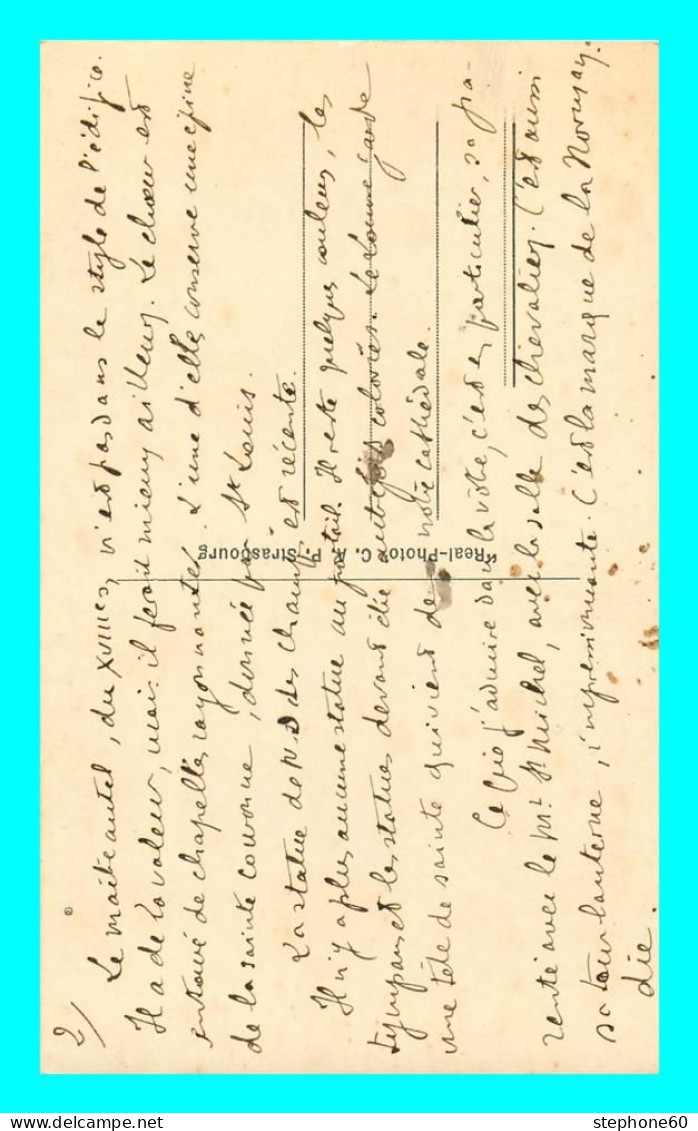 2/
Le maître autel, du XVIIIes, n'est pas dans le style de l'édifice.
Il a de la valeur, mais il ferait mieux ailleurs. Le chœur est
entouré de chapelles rayonnantes. L'une d'elles conserve une épine
de la sainte couronne, donnée par St Louis.
La statue de N.D des champs est récente.
Il n'y a plus aucune statue au portail. Il reste quelques couleurs, les
tympans et les statues devant être autrefois coloriés. Le Louvre garde
une tête de sainte qui vient de notre cathédrale.
Ce que j'admire dans la vôtre, c'est en particulier, sa pa-
renté avec le Mt St Michel, avec la salle des chevaliers. C'est aussi
sa tour lanterne, impressionnante. C'est la marque de la Norman-
die.
"Real-Photo C. A. P. Strasbourg
stephone60